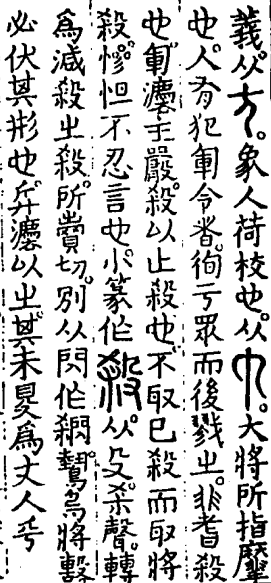 義从方。象人荷校也。从巾。大將所指麾
也。人有犯軍令者。徇于眾而後戮之。非耆殺
也。軍灋至嚴。殺以止殺也。不取已殺而取將
殺。慘怛不忍言也。小篆作殺。从殳杀聲。轉
為減殺之殺。所賣切。別从閃作閷。鷙鳥將擊
必伏其形也。灋以之。其未為丈人乎